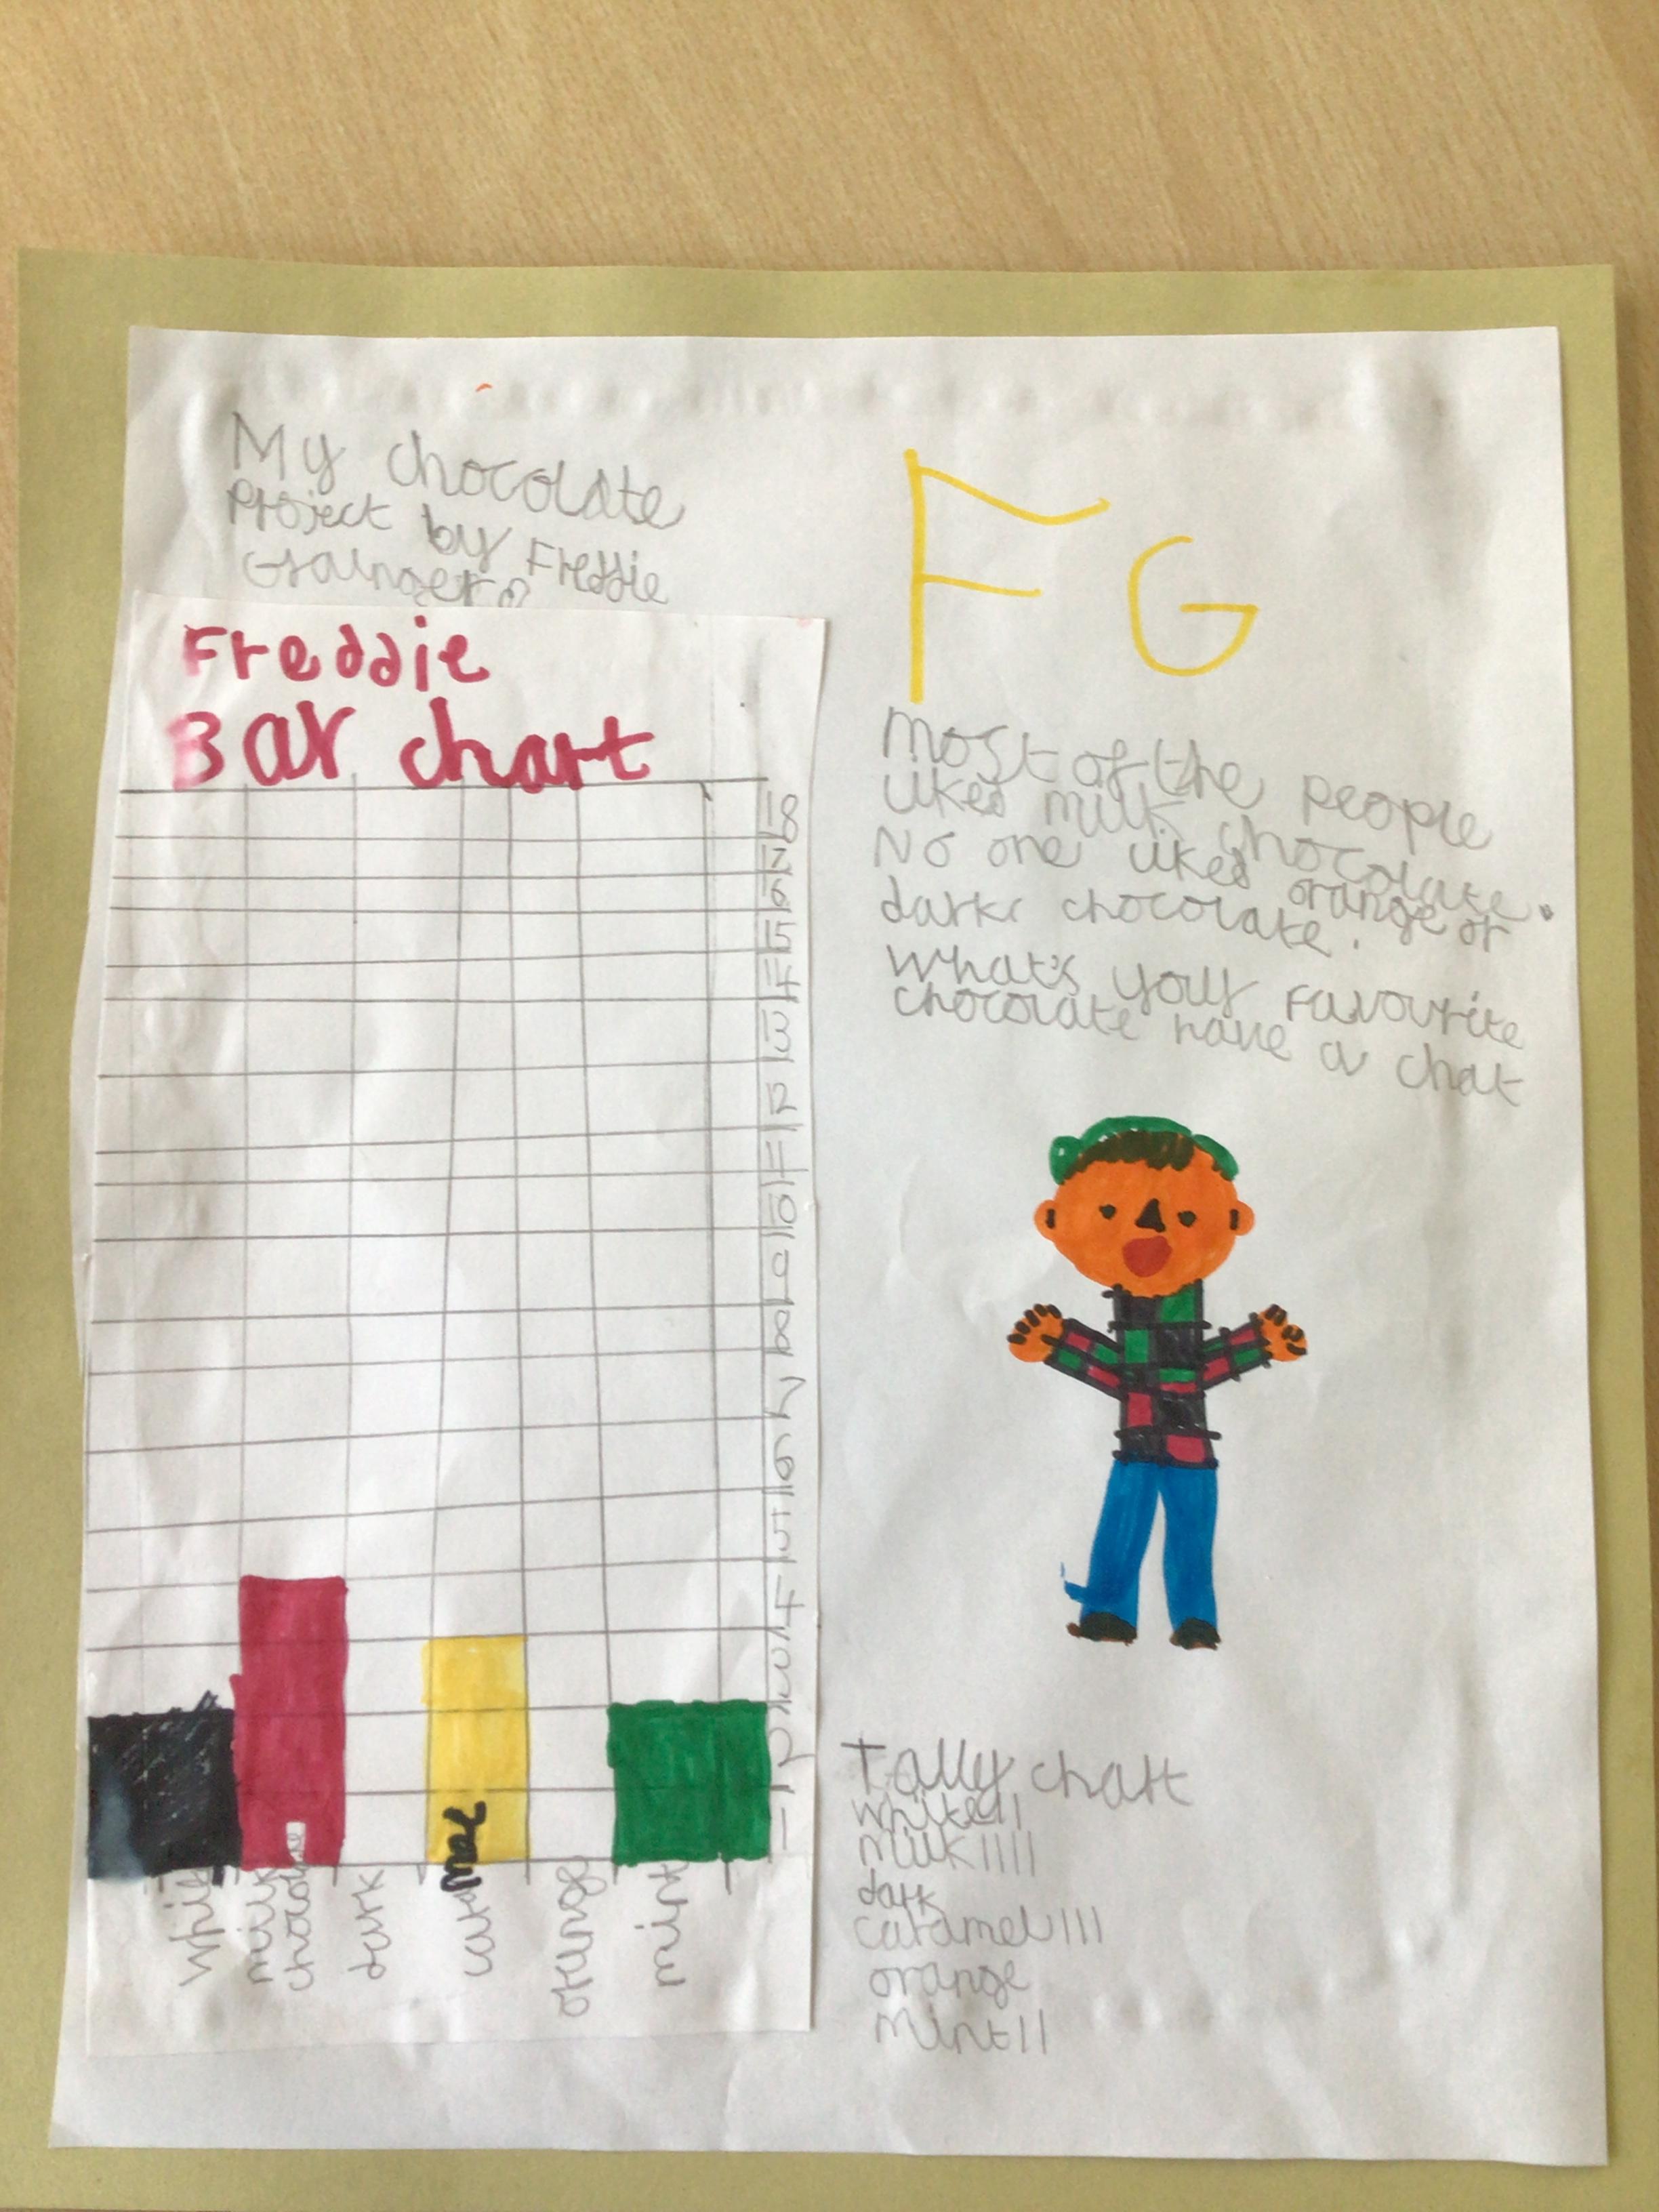 My chocolate
Project by Freddie
Grainger
Freddie
Bar chart
18
17
16
15
14
13
12
11
10
9
8
7
6
5
4
3
2
1
white
milk
chocolate
dark
caramel
orange
mint
F G
most of the people
liked milk chocolate.
No one liked orange or
dark chocolate.
What's your Favourite
chocolate have a chat
Tally chart
white II
milk IIII
dark
caramel III
orange
mint II